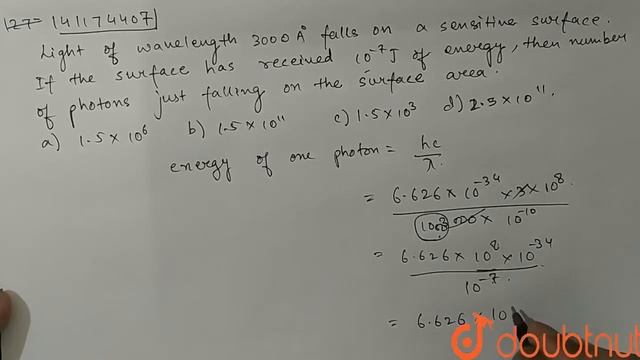 127= 141174407
Light of wavelength 3000A° falls on a sensitive surface.
If the surface has received 10⁻⁷J of energy, then number
of photons just falling on the surface area.
a) 1.5×10⁶ b) 1.5×10¹¹ c) 1.5×10³ d) 2.5×10¹¹.
energy of one photon = hc/λ.
= 6.626×10⁻³⁴×3×10⁸.
10⁻¹⁰
= 6.626×10⁸×10⁻³⁴
10⁻⁷.
= 6.626×10
doubtnut